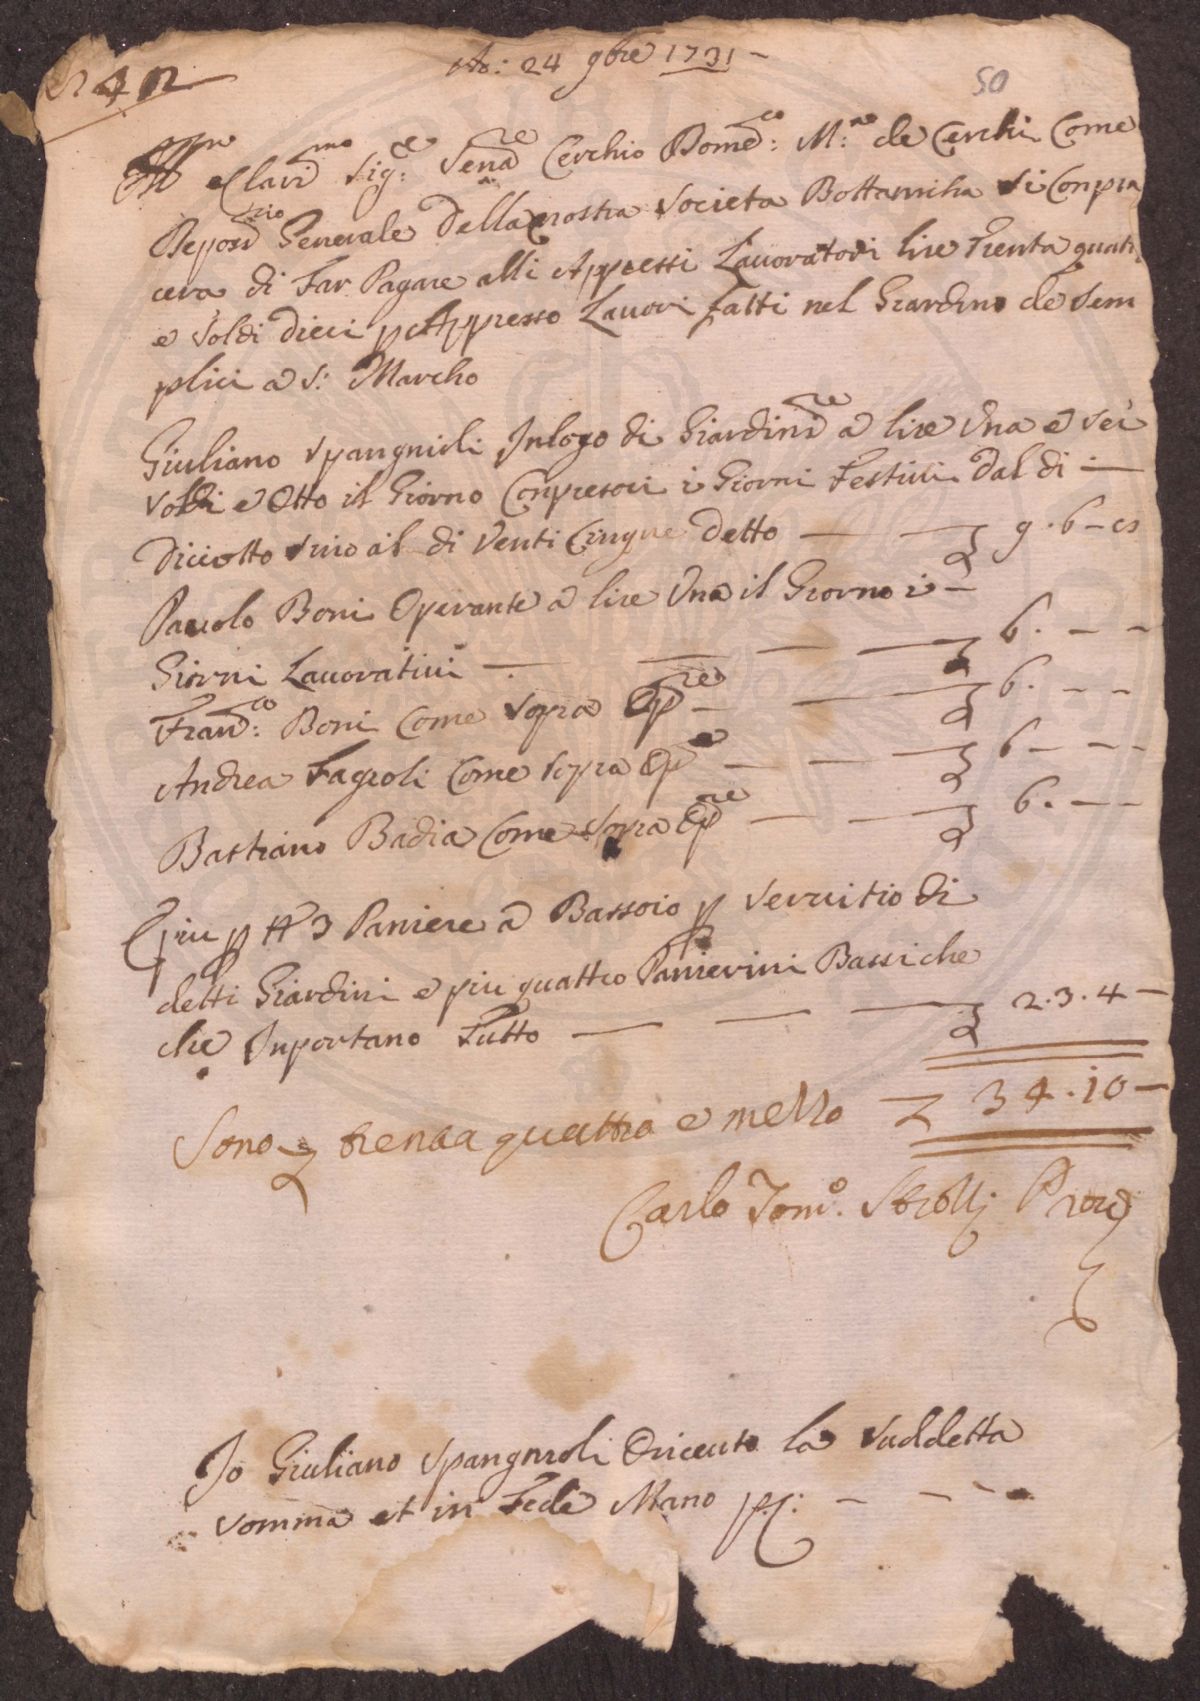 Ao: 24 9bre 1731
50
Illmo e Clarmo Sigre Senare Cerchio Domeco: Ma: de Cerchi Come
Deposrio Generale Della nostra Societa Bottanicha Si Conpia
cera di Far Pagare alli Appressi Lauoratori lire Trenta quatt
e Soldi dieci p Appresso Lauori fatti nel Giardino de Sem
plici a S: Marcho
Giuliano Spangnioli Inlogo di Giardinire a lire Una e Sei
Soldi e Otto il Giorno Conpresoui i Giorni Festiui Dal di
Diciotto Sino al di Venti Cinque detto 9.6-
Pauolo Boni Operante a lire Una il Giorno i
Giorni Lauoratiui 6.--
Franco: Boni Come Sopra Opre 6.--
Andrea Fagioli Come Sopra Ope 6---
Bastiano Badia Come Sopra Opre 6.--
E piu p tt 3 Paniere a Bassoio p Seruitio di
detti Giardini e piu quattro Panierini Bassi che
che Inportano Tutto 2.3.4-
Sono trenta quattro e mezzo 34.10-
Carlo Tomo. Strozzi
Io Giuliano Spangnioli O riceuto la Suddetta
Somma et in Fede Mano pp: